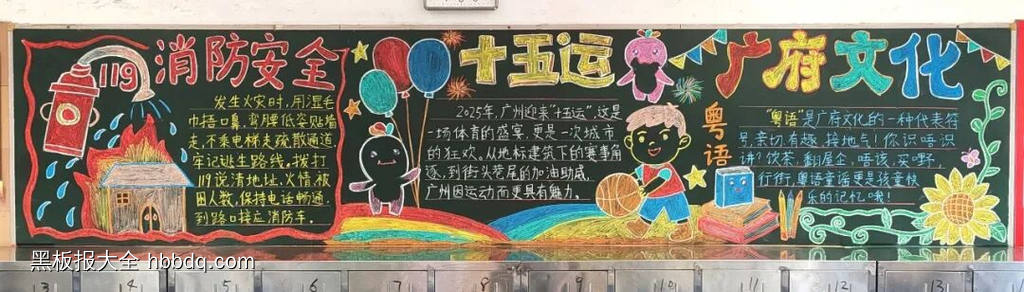 119
消防安全
发生火灾时,用湿毛
巾捂口鼻,弯腰低姿贴墙
走,不乘电梯走疏散通道,
牢记逃生路线。拨打
119说清地址,火情,被
困人数,保持电话畅通,
到路口接应消防车。
十五运
2025年,广州迎来“十五运”,这是
一场体育的盛宴,更是一次城市
的狂欢。从地标建筑下的赛事角
逐,到街头巷尾的加油助威,
广州因运动而更具有魅力。
广府文化
粤语
“粤语”是广府文化的一种代表符
号,亲切有趣,接地气!你识唔识
讲?饮茶,翻屋企,唔该,买嘢,
行街,粤语童谣更是孩童快
乐的记忆哦!
黑板报大全 hbbdq.com
13
14
15
7
8
9
10
11
12
13